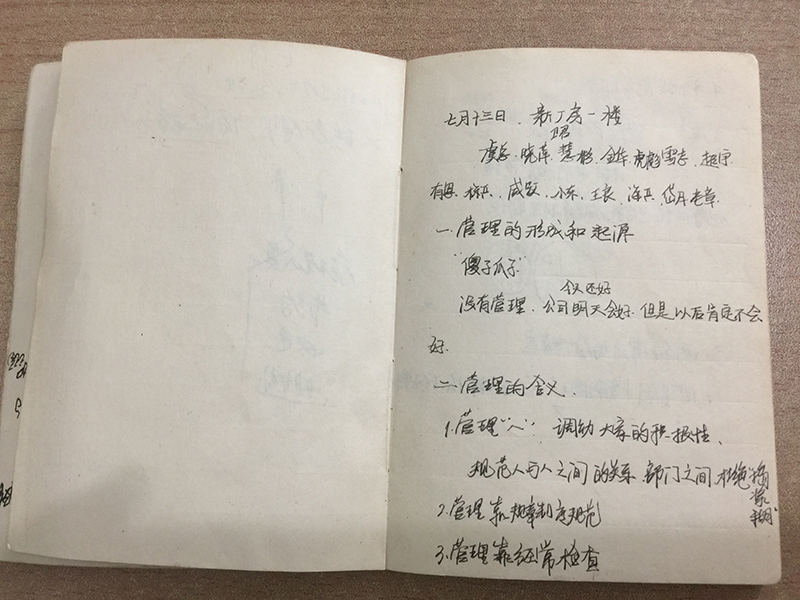 七月十三日. 新厂房一楼
晓萍. 慧彬. 金华. 虎彪
成跃. 小东. 王良. 老章
一. 管理的形成和起源
"傻子瓜子"
会议还好
没有管理. 公司明天会好. 但是以后肯定不会
好.
二. 管理的含义.
1. 管理"人": 调动大家的积极性.
规范人与人之间的关系. 部门之间. 杜绝"稀
糊"
2. 管理靠规章制度规范
3. 管理靠经常检查